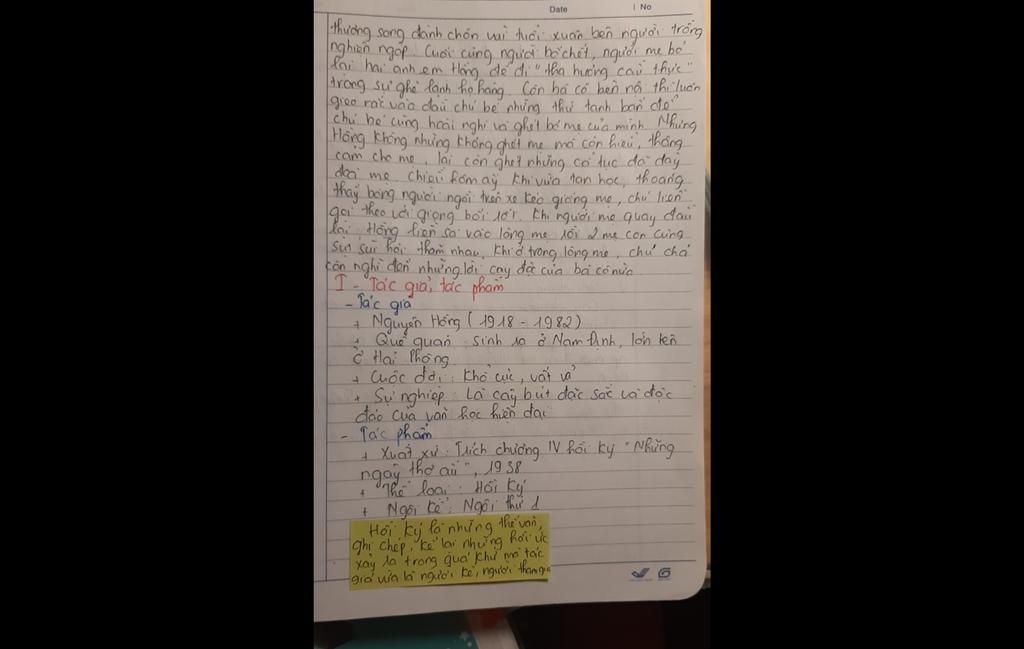 Date | No
thương song đành chôn vùi tuổi xuân bên người chồng
nghiện ngập. Cuối cùng người bố chết, người mẹ bỏ
lại hai anh em Hồng để đi "tha hương cầu thực"
trong sự ghẻ lạnh họ hàng. Còn bà cô bên nội thì luôn
gieo rắc vào đầu chú bé những thứ tanh bẩn để
chú bé cũng hoài nghi và ghét bỏ mẹ của mình. Nhưng
Hồng không những không ghét mẹ mà còn hiểu, thông
cảm cho mẹ, lại còn ghét những cổ tục đã đày
đoạ mẹ. Chiều hôm ấy khi vừa tan học, thoáng
thấy bóng người ngồi trên xe kéo giống mẹ, chú liền
gọi theo với giọng bối rối. Khi người mẹ quay đầu
lại Hồng liền sà vào lòng mẹ rồi 2 mẹ con cùng
sụt sùi hỏi thăm nhau, khi ở trong lòng mẹ, chú chả
còn nghĩ đến những lời cay độc của bà cô nữa
I - Tác giả, tác phẩm
- Tác giả
+ Nguyên Hồng (1918 - 1982)
+ Quê quán: sinh ra ở Nam Định, lớn lên
ở Hải Phòng
+ Cuộc đời: Khổ cực, vất vả
+ Sự nghiệp: Là cây bút đặc sắc và độc
đáo của văn học hiện đại
- Tác phẩm
+ Xuất xứ: Trích chương IV hồi ký "Những
ngày thơ ấu", 1938
+ Thể loại: Hồi ký
+ Ngôi kể: Ngôi thứ 1
Hồi ký là những thể văn,
ghi chép, kể lại những hồi ức
xảy ra trong quá khứ mà tác
giả vừa là người kể, người tham gia